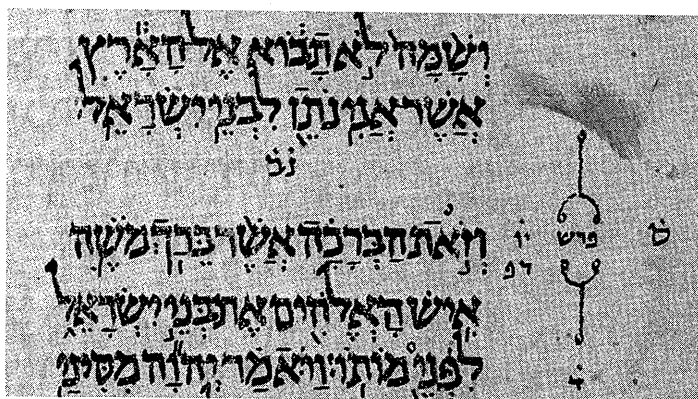 וְשָׁמָּה לֹא תָבוֹא אֶל הָאָרֶץ
אֲשֶׁר אֲנִי נֹתֵן לִבְנֵי יִשְׂרָאֵל
נב
וְזֹאת הַבְּרָכָה אֲשֶׁר בֵּרַךְ מֹשֶׁה
פרש
אִישׁ הָאֱלֹהִים אֶת בְּנֵי יִשְׂרָאֵל
לִפְנֵי מוֹתוֹ׃ וַיֹּאמַר יְהוָה מִסִּינַי